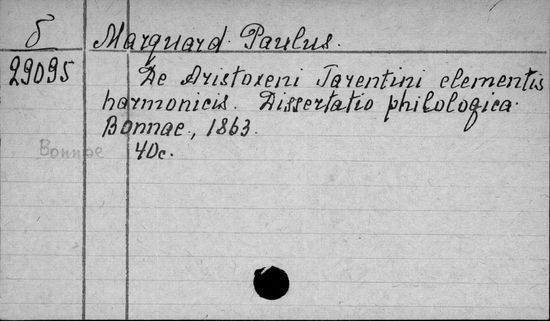 б Marquard Paulus.
29095 De Aristoxeni Tarentini elementis
harmonicis. Dissertatio philologica.
Bonnae, 1863.
Bonnae 40c.